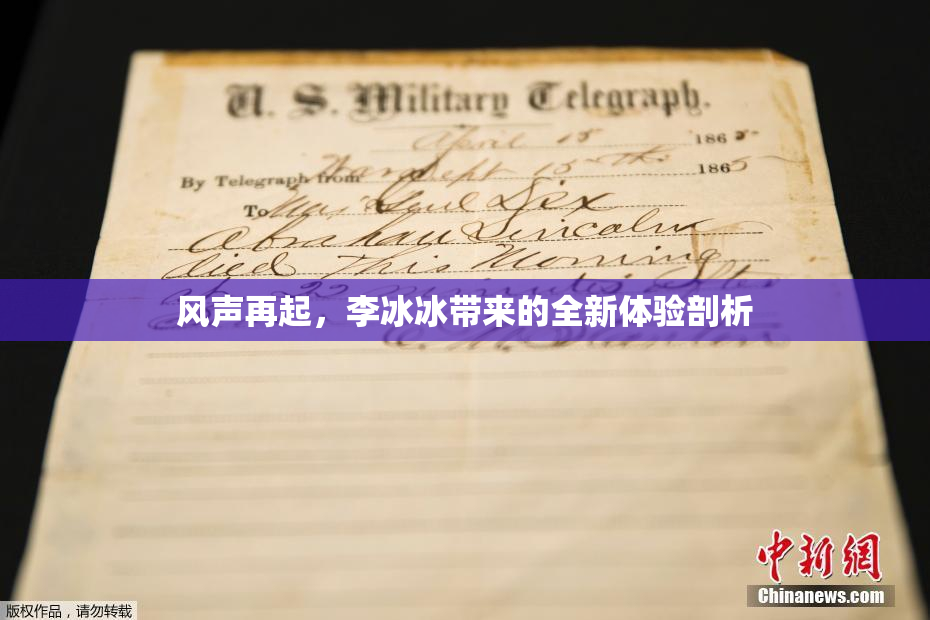 U. S. Military Telegraph.
April 15 1865
By Telegraph from War Dept 15th 1865
To Maj Genl Dix
Abraham Lincoln
died this Morning
at 22 minutes after
风声再起，李冰冰带来的全新体验剖析
E. M. Stanton
中新網
Chinanews.com
版权作品，请勿转载